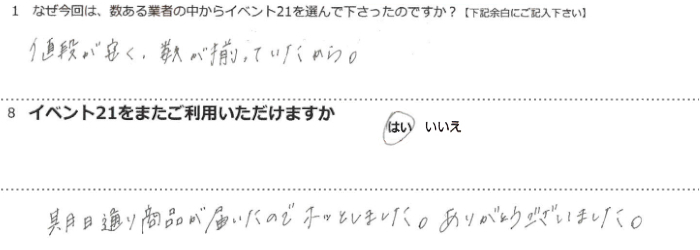 1 なぜ今回は、数ある業者の中からイベント21を選んで下さったのですか？【下記余白にご記入下さい】
値段が安く、数が揃っていたから。
8 イベント21をまたご利用いただけますか
はい いいえ
期日通り商品が届いたのでホッとしました。ありがとうございました。